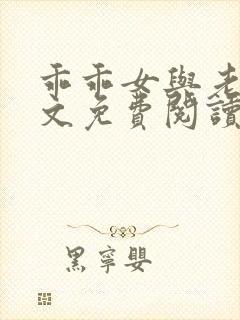 乖乖女與老
文免費閱讀
黑寧嬰